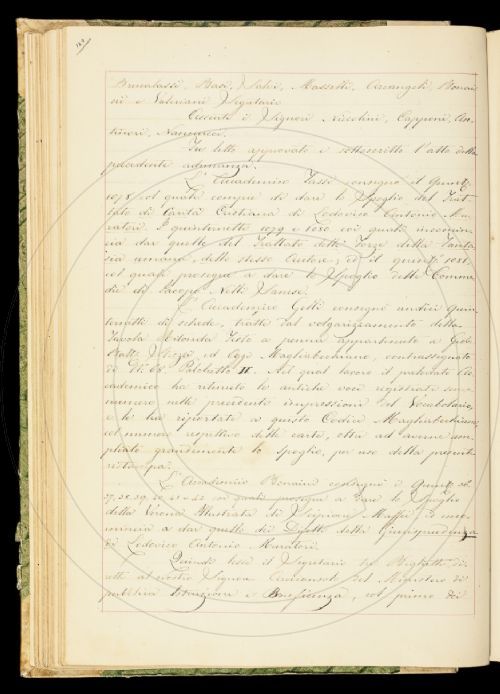 Brunalassi, Baoi, Salvi, Masselli, Arcangeli, Bonai
ni e Valeriani Segretario
Assenti i Signori Niccolini, Capponi, An
tinori, Nannucci.
Fu letto approvato e sottoscritto l'atto della
precedente adunanza.
L'Accademico Tassi consegnò il Quint.
1078 col quale compie di dare lo Spoglio del Trat
tato di Carità Cristiana di Lodovico Antonio Mu
ratori. I quinternetti 1079 e 1080 coi quali incomin
cia dar quello del Trattato della Forza della Fanta
sia umana, dello stesso Autore; ed il quint. 1081
col quale prosegue a dare lo Spoglio delle Comme
die di Jacopo Nelli Sanese.
L'Accademico Gelli consegnò undici Quin
ternetti di schede, tratte dal volgarizzamento della
Tavola Ritonda Testo a penna appartenuto a Gio:
Batta. , ed oggi Magliabechiano, contrassegnato
di Palchetto II. Nel qual lavoro il predetto Ac
cademico ha ritenuto le antiche voci registrate senza
numero nelle precedenti impressioni del Vocabolario,
e le ha riportate a questo Codice Magliabechiano,
col numero respettivo delle carte, oltre ad averne am
pliato grandemente lo spoglio, per uso della presente
ristampa.
L'Accademico Bonaini consegnò i Quint. 36.
37, 38, 39, 40, 41 e 42 coi quali prosegue a dare lo Spoglio
della Verona Illustrata di Scipione Maffei, ed inco
mincia a dar quello dei Difetti della Giurisprudenza
di Lodovico Antonio Muratori.
Quindi lesse il Segretario due Biglietti di
retti al nostro Signore Arciconsolo dal Ministero di
pubblica Istruzione e Beneficenza, col primo dei